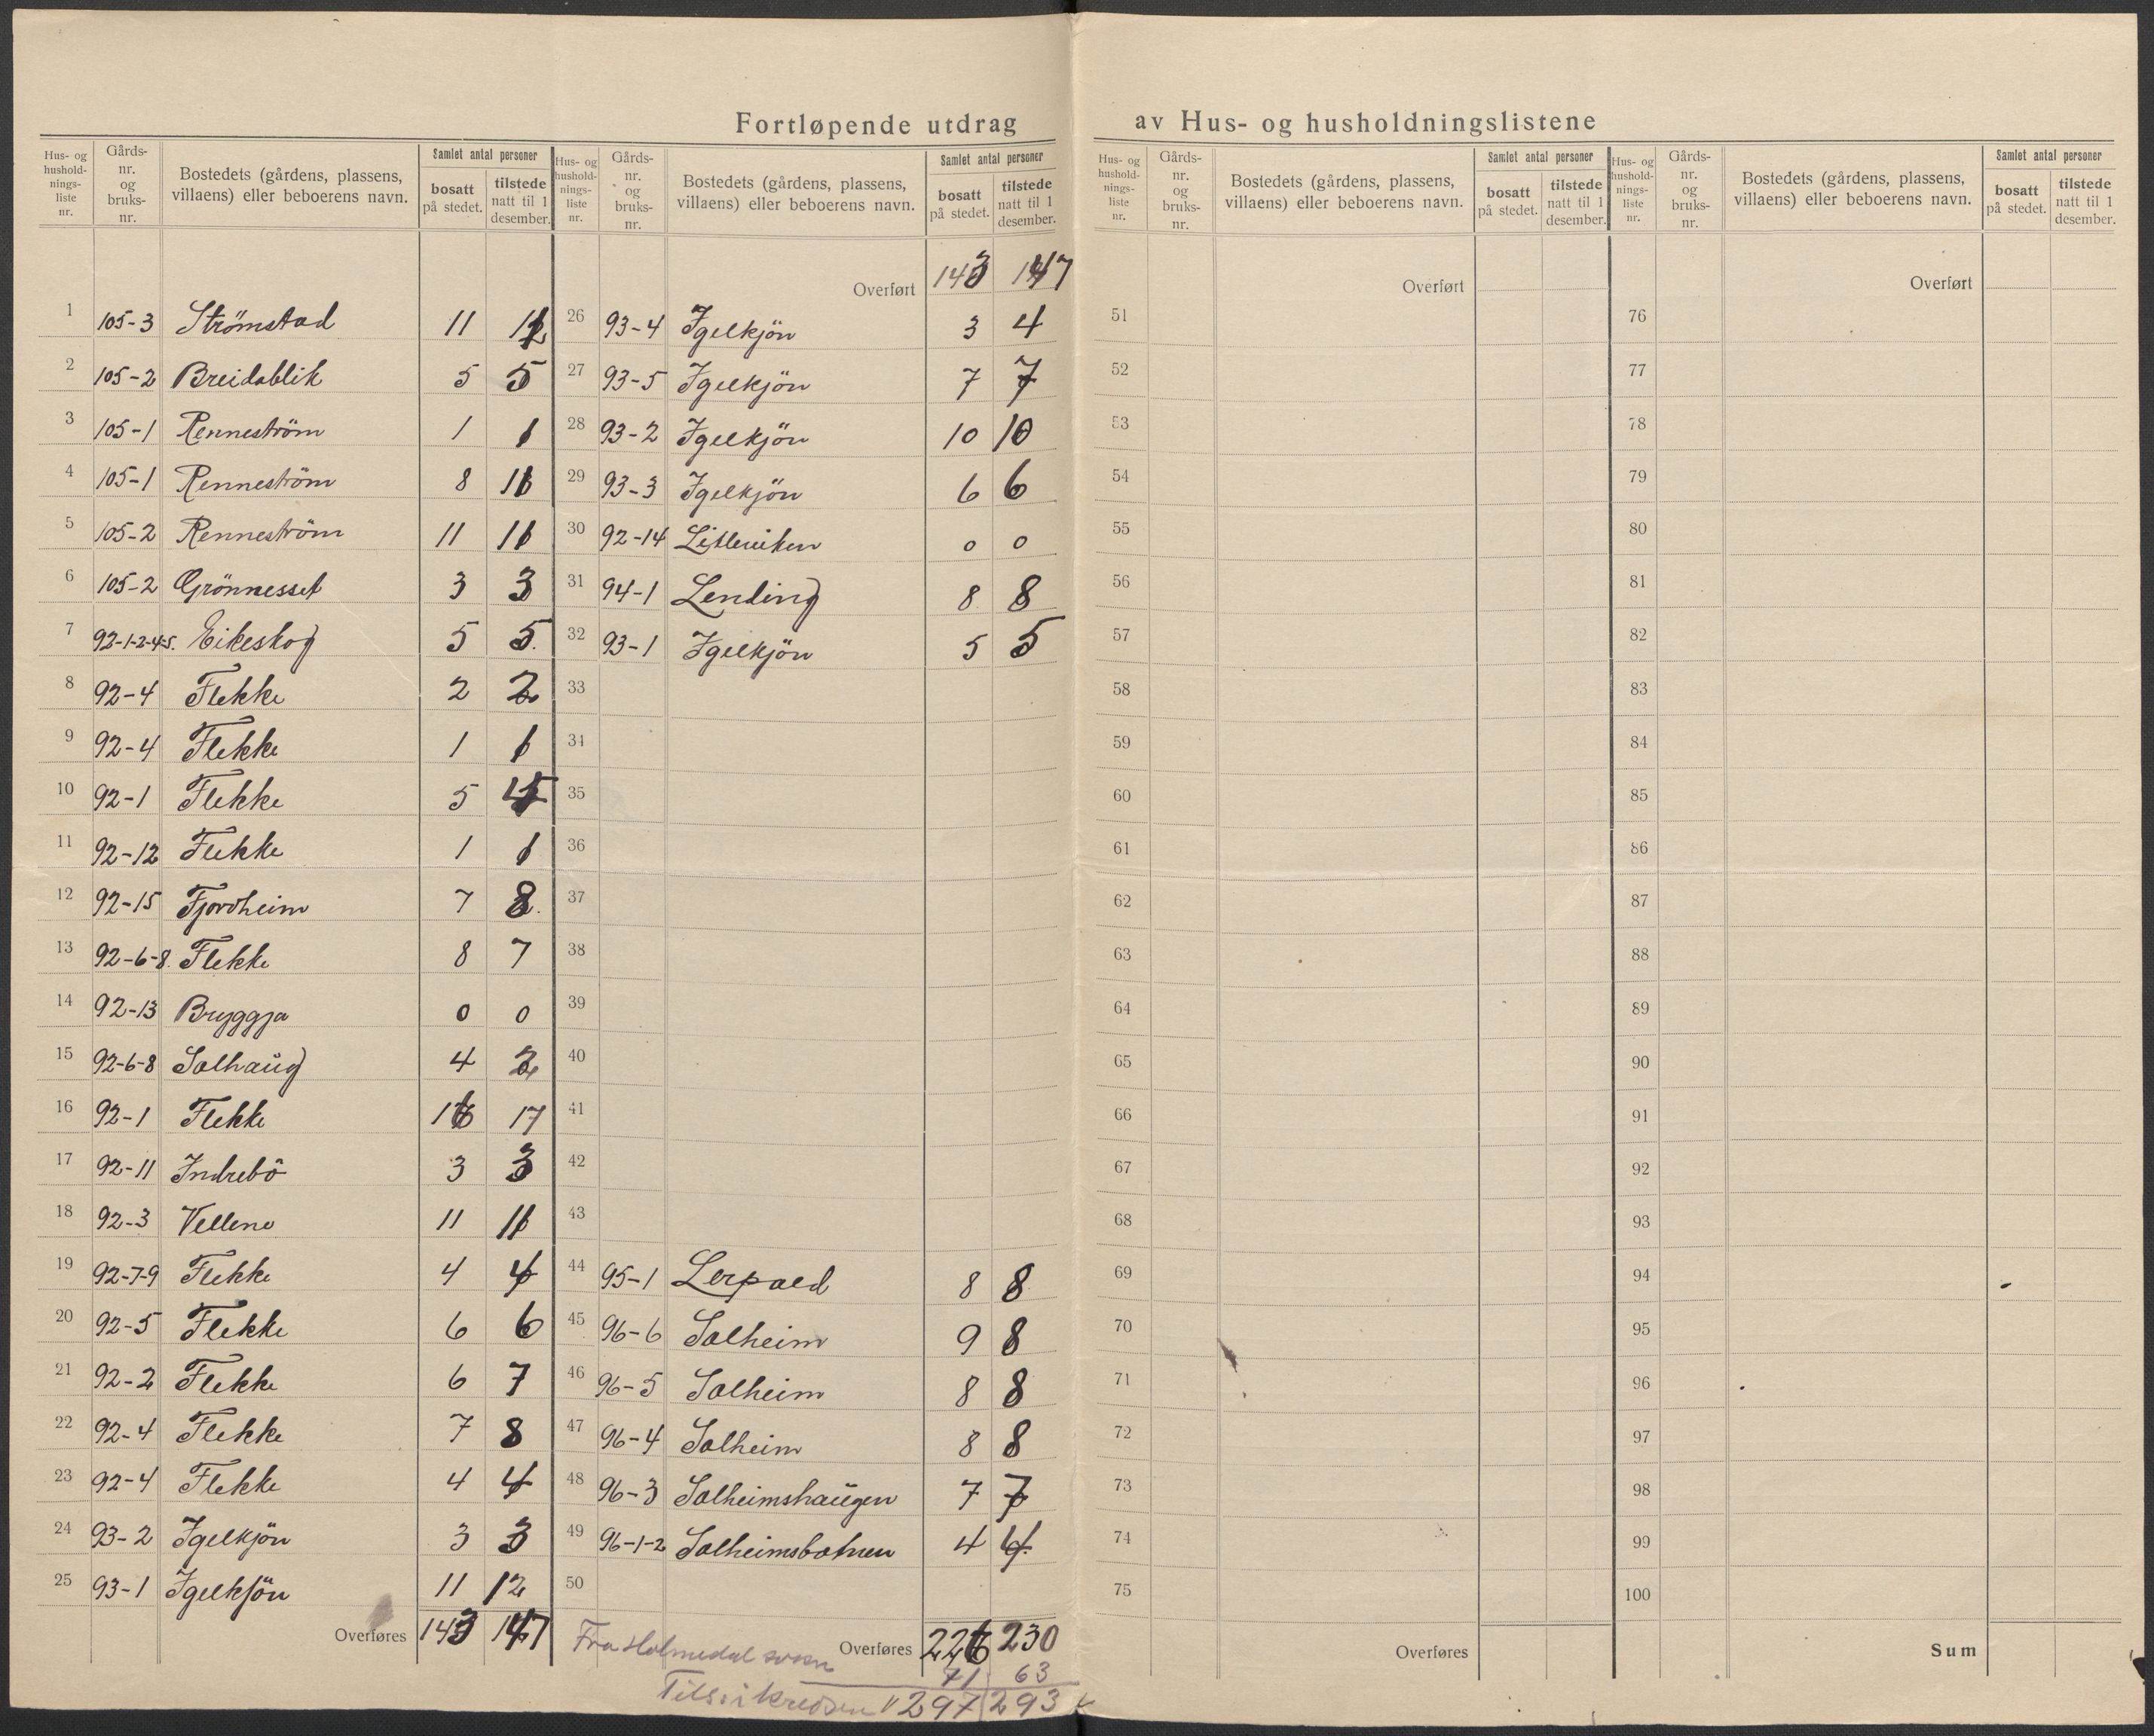 Fortløpende utdrag av Hus- og husholdningslistene
Hus- og hushold- nings- liste nr. | Gårds- nr. og bruks- nr. | Bostedets (gårdens, plassens, villaens) eller beboerens navn. | Samlet antal personer | bosatt på stedet. | tilstede natt til 1 desember.
1 105-3 Strömstad 11 12
2 105-2 Breidablik 5 5
3 105-1 Renneström 1 1
4 105-1 Renneström 8 11
5 105-2 Renneström 11 11
6 105-2 Grönnesset 3 3
7 92-1-2-4-5. Eikeskog 5 5.
8 92-4 Flekke 2 2
9 92-4 Flekke 1 1
10 92-1 Flekke 5 5
11 92-12 Flekke 1 1
12 92-15 Fjordheim 7 8.
13 92-6-8. Flekke 8 7
14 92-13 Bryggja 0 0
15 92-6-8 Solhaug 4
16 92-1 Flekke 16 17
17 92-11 Indrebö 3 3
18 92-3 Vellene 11 11
19 92-7-9 Flekke 4 4
20 92-5 Flekke 6 6
21 92-2 Flekke 6 7
22 92-4 Flekke 7 8
23 92-4 Flekke 4 4
24 93-2 Igelkjön 3 3
25 93-1 Igelkjön 11 12
Overføres 143 147
Hus- og hushold- nings- liste nr. | Gårds- nr. og bruks- nr. | Bostedets (gårdens, plassens, villaens) eller beboerens navn. | Samlet antal personer | bosatt på stedet. | tilstede natt til 1 desember.
Overført 143 147
26 93-4 Igelkjön 3 4
27 93-5 Igelkjön 7 7
28 93-2 Igelkjön 10 10
29 93-3 Igelkjön 6 6
30 92-14 Litleviken 0 0
31 94-1 Lending 8 8
32 93-1 Igelkjön 5 5
33
34
35
36
37
38
39
40
41
42
43
44 95-1 Lerpold 8 8
45 96-6 Solheim 9 8
46 96-5 Solheim 8 8
47 96-4 Solheim 8 8
48 96-3 Solheimshaugen 7 7
49 96-1-2 Solheimsbotnen 4 4.
50
Overføres 226 230
Fra Holmedal sogn 71 63
297 293
Hus- og hushold- nings- liste nr. | Gårds- nr. og bruks- nr. | Bostedets (gårdens, plassens, villaens) eller beboerens navn. | Samlet antal personer | bosatt på stedet. | tilstede natt til 1 desember.
Overført
51
52
53
54
55
56
57
58
59
60
61
62
63
64
65
66
67
68
69
70
71
72
73
74
75
Overføres
Hus- og hushold- nings- liste nr. | Gårds- nr. og bruks- nr. | Bostedets (gårdens, plassens, villaens) eller beboerens navn. | Samlet antal personer | bosatt på stedet. | tilstede natt til 1 desember.
Overført
76
77
78
79
80
81
82
83
84
85
86
87
88
89
90
91
92
93
94
95
96
97
98
99
100
Sum